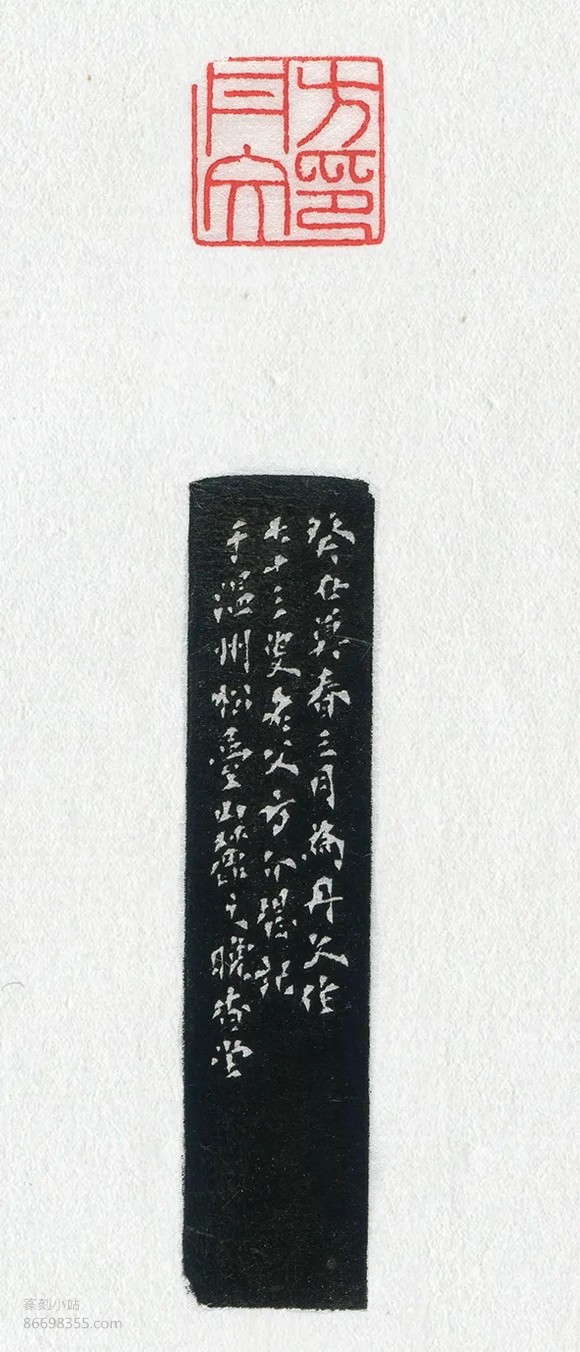 方印
癸丑莫春三月為丹文作
七十三叟父方介堪記
于溫州松臺山麓之晚晴堂
篆刻小站
86698355.com